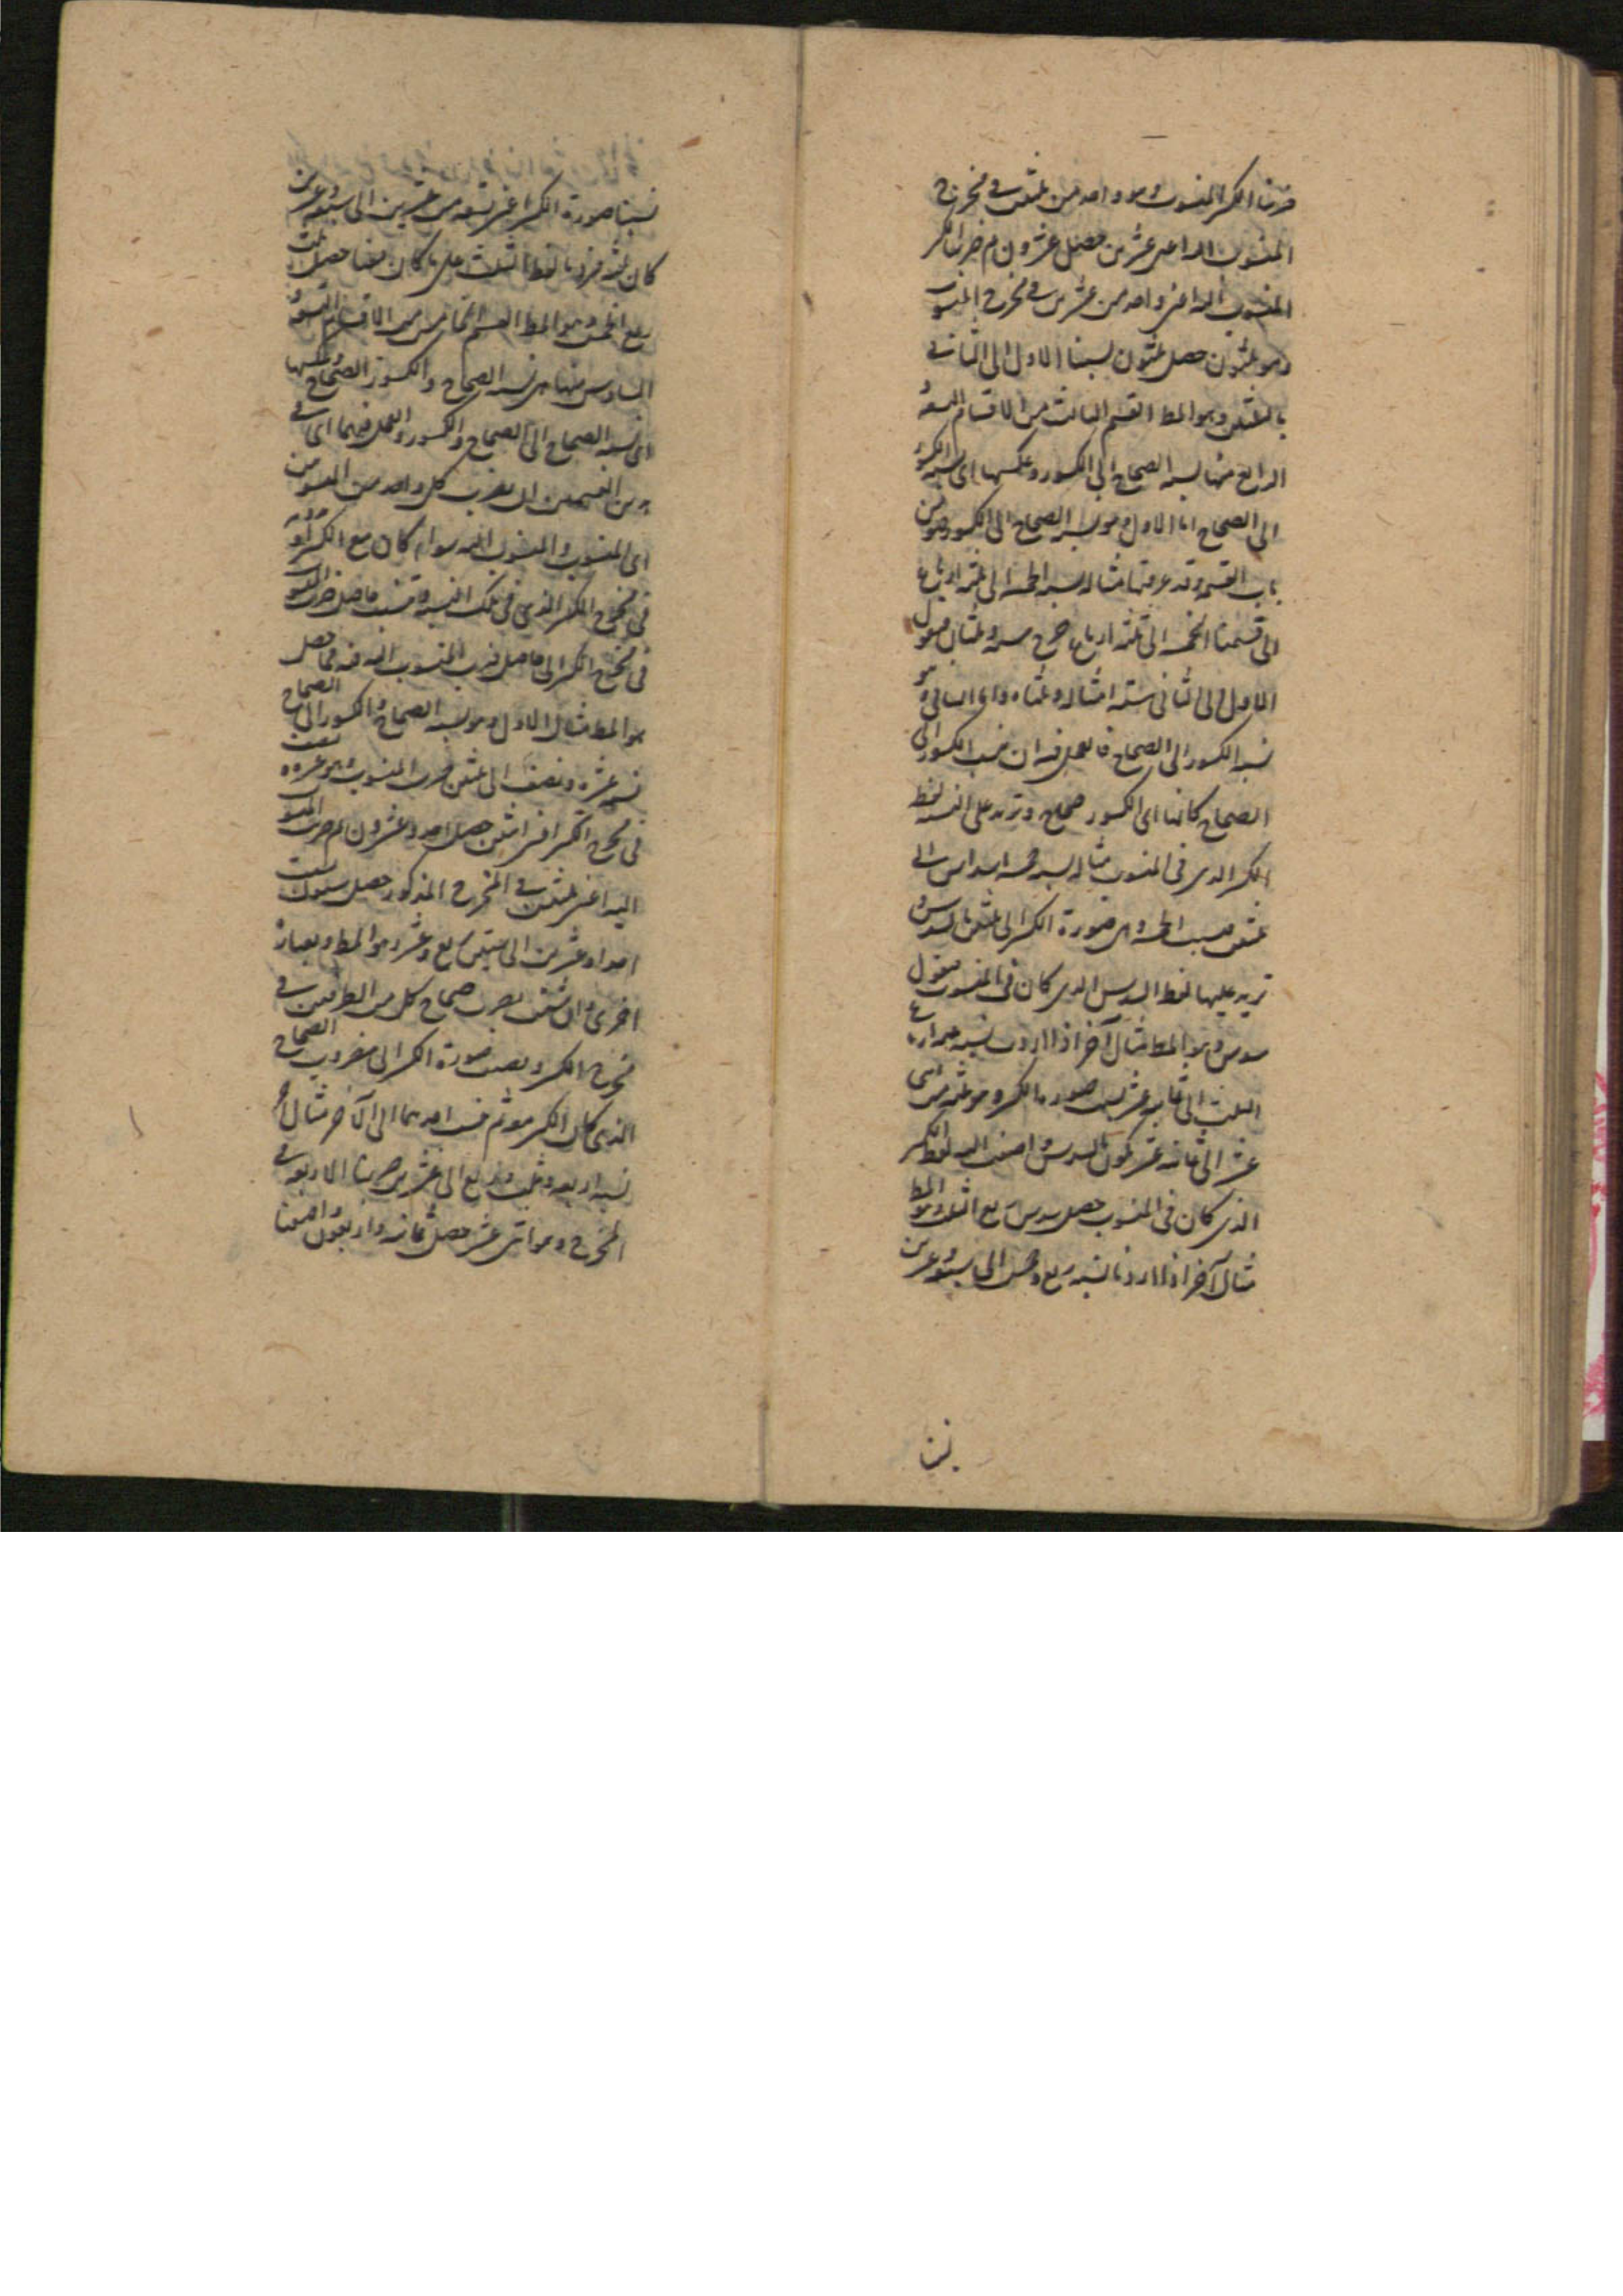 ضربنا الكسر المنسوب وهو واحد من ثلثين في مخرج
المنسوب اليه اعنى عشرين حصل عشرون ثم ضربنا الكسر
المنسوب اليه اعنى واحد من عشرين في مخرج المنسوب
وهو ثلثون حصل ثلثون نسبنا الاول الى الثاني
بالثلثين وهو المط القسم الثالث من الاقسام التسعة
الرابع منها نسبة الصحاح الى الكسور وعكسها اى نسبة الكسور
الى الصحاح اما الاول وهو نسبة الصحاح الى الكسور فهو من
باب القسمة وقد عرفتها مثاله نسبة الخمسة الى ثلثة ارباع
الى قسمنا الخمسة الى ثلثة ارباع خرج ستة وثلثان فنقول
الاول الى الثاني ستة امثاله وثلثاه واما الثاني وهو
نسبة الكسور الى الصحاح فالعمل فيه ان تنسب الكسور الى
الصحاح كانها اى الكسور صحاح وتزيد على النسبة لفظ
الكسر الذى في المنسوب مثاله نسبة خمسة اسداس الى
ثلثين نسبت الخمسة وهى صورة الكسر الى ثلثين بالسدس
تزيد عليها لفظ السدس الذى كان في المنسوب فنقول
سدس وهو المط مثال آخر اذا اردت نسبة ارباع
الثلث الى ثمانية عشر صورة الكسر وهو ثلثة من اثنى
عشر الى ثمانية عشر تكون بالسدس اضفت اليه لفظ الكسر
الذى كان في المنسوب حصل سدس ربع الثلث وهو المط
مثال آخر اذا اردنا نسبة ربع وخمس الى سبعة وعشرين
نسبنا
نسبنا صورة الكسر اعنى تسعة من عشرين الى سبعة وعشرين
كان ثلثه فزدنا لفظ الثلث على ما كان معنا حصل ثلث
ربع الخمس وهو المط القسم الخامس من الاقسام التسعة
السادس منها هى نسبة الصحاح والكسور الى الصحاح وعكسها
اى نسبة الصحاح الى الصحاح والكسور والعمل فيهما اى في
هذين القسمين ان تضرب كل واحد من المنسوبين
اى المنسوب والمنسوب اليه سواء كان مع الكسر او
في مخرج الكسر الذى في تلك النسبة وتنسب حاصل ضرب المنسوب
في مخرج الكسر الى حاصل ضرب المنسوب اليه فيه فما حصل
هو المط مثال الاول وهو نسبة الصحاح والكسور الى الصحاح
نسبة عشرة ونصف الى ثلثين ضربت المنسوب وهو عشرة ونصف
في مخرج الكسر اعنى اثنين حصل احد وعشرون ثم ضربت المنسوب
اليه اعنى ثلثين في المخرج المذكور حصل ستون نسبت
احدا وعشرين الى ستين ربع وعشر وهو المط وبعبارة
اخرى وان شئت تضرب صحاح كل من الطرفين في
مخرج الكسر وتضيف صورة الكسر الى مضروب الصحاح
الذى كان الكسر معه ثم تنسب احدهما الى الآخر مثال
نسبة اربعة وثلث وربع الى عشرين ضربنا الاربعة في
المخرج وهو اثنى عشر حصل ثمانية واربعون اضفنا